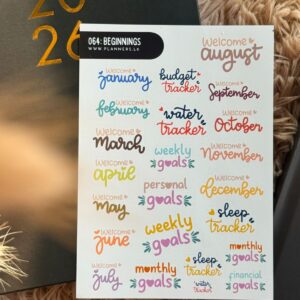 20
26
064: BEGINNINGS
WWW.PLANNERS.LK
Welcome
august
Welcome
january
budget
tracker
Welcome
September
Welcome
february
water
tracker
Welcome
October
Welcome
March
weekly
goals
Welcome
November
Welcome
april
personal
goals
Welcome
december
Welcome
May
weekly
goals
sleep
tracker
Welcome
june
monthly
goals
Welcome
July
monthly
goals
sleep
tracker
water
tracker
financial
goals